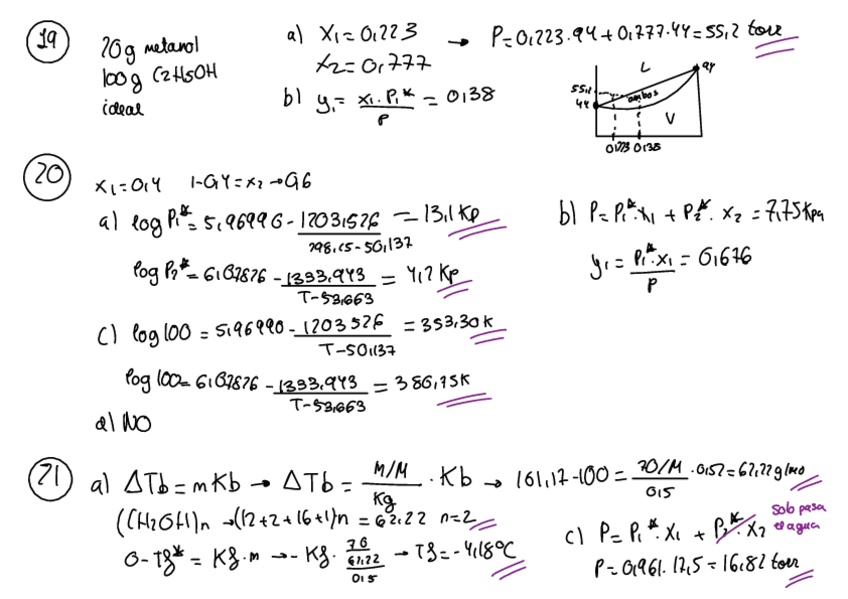 19
20g metanol
100g C2H5OH
ideal
a) X1=0,223 → P=0,223.94+0,777.44=55,2 torr
X2=0,777
b) y1= x1.P1*/P = 0,38
L
94
55,2
44
ambos
V
0,223 0,38
20
x1=0,4 1-0,4=x2→0,6
a) log P1*=5,96990-1203,526/298,15-50,137=13,1 Kp
log P2*=6,07826-1333,943/T-53,663=4,2 Kp
b) P=P1*.x1+P2*.x2=7,75Kpa
y1=P1*.x1/P=0,676
c) log100=5,96990-1203526/T-50,137=353,30K
log100=6,07826-1333,943/T-53,663=386,75K
d) NO
21
a) ΔTb=mKb→ΔTb=M/M/Kg.Kb→101,12-100=70/M/0,5.0,52=62,22g/mo
(CH2OH)n→(12+2+16+1)n=62,22 n=2
0-Tf*=Kf.m→-Kf.70/62,22/0,5→Tf=-4,18°C
c) P=P1*.X1+P2*.X2
solo pasa
el agua
P=0,961.17,5=16,82 torr